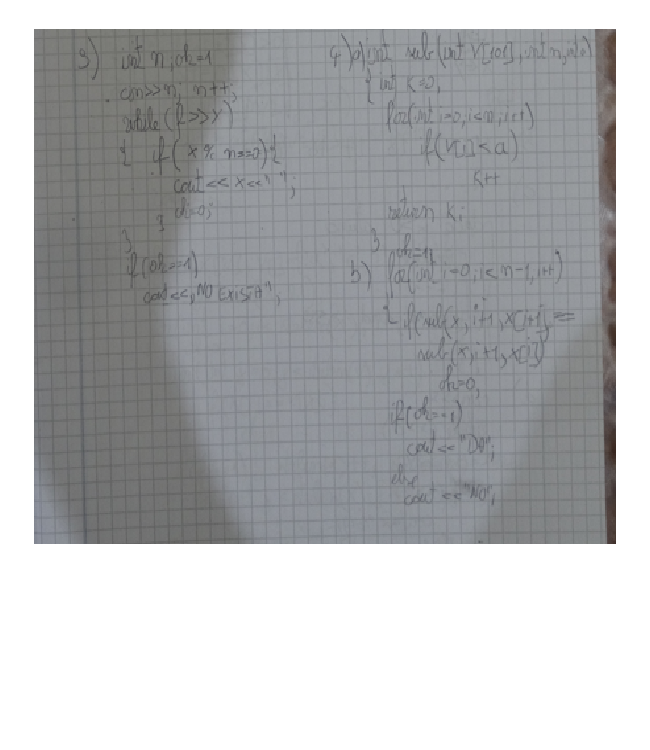 3) int n, ok=1
cin>>n, n++;
while (f>>x)
{ if( x % n==0){
cout << x<<" ";
ok=0;
}
}
if (ok==1)
cout<<"NU EXISTA";
4) a) int sub(int v[101], int n, int a)
{ int k=0,
for(int i=0, i<n, i++)
if(v[i]<a)
k++
return k;
}
ok=1;
b) for(int i=0, i<n-1, i++)
{ if(sub(x, i+1, x[i+1] ==
sub(x, i+1, x[i])
ok=0,
if(ok==1)
cout << "DA",
else
cout << "NU",